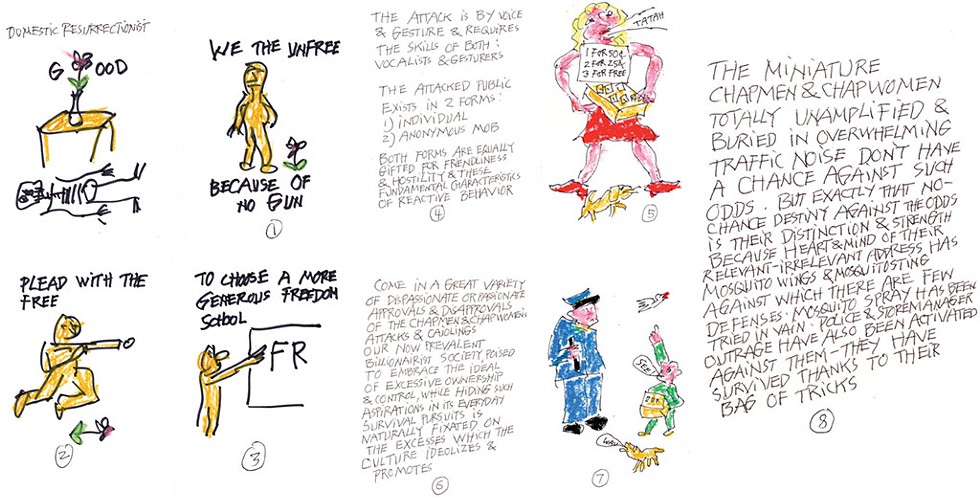 DOMESTIC RESURRECTIONIST
G OOD
WE THE UNFREE
BECAUSE OF
NO GUN
1
PLEAD WITH THE
FREE
2
TO CHOOSE A MORE
GENEROUS FREEDOM
SCHOOL
FR
3
THE ATTACK IS BY VOICE
& GESTURE & REQUIRES
THE SKILLS OF BOTH:
VOCALISTS & GESTURERS
THE ATTACKED PUBLIC
EXISTS IN 2 FORMS:
1) INDIVIDUAL
2) ANONYMOUS MOB
BOTH FORMS ARE EQUALLY
GIFTED FOR FRENDLINESS
& HOSTILITY & THESE
FUNDAMENTAL CHARACTERISTICS
OF REACTIVE BEHAVIOR
4
TATAH
1 FOR 50¢
2 FOR 25¢
3 FOR FREE
5
COME IN A GREAT VARIETY
OF DISPASSIONATE OR PASSIONATE
APPROVALS & DISAPPROVALS
OF THE CHAPMEN & CHAPWOMEN'S
ATTACKS & CAJOLINGS
OUR NOW PREVALENT
BILLIONAIRIST SOCIETY, POISED
TO EMBRACE THE IDEAL
OF EXCESSIVE OWNERSHIP
& CONTROL, WHILE HIDING SUCH
ASPIRATIONS IN ITS EVERYDAY
SURVIVAL PURSUITS IS
NATURALLY FIXATED ON
THE EXCESSES WHICH THE
CULTURE IDEOLIZES &
PROMOTES
6
SEE!
7
THE MINIATURE
CHAPMEN & CHAPWOMEN
TOTALLY UNAMPLIFIED &
BURIED IN OVERWHELMING
TRAFFIC NOISE DON'T HAVE
A CHANCE AGAINST SUCH
ODDS. BUT EXACTLY THAT NO-
CHANCE DESTINY AGAINST THE ODDS
IS THEIR DISTINCTION & STRENGTH
BECAUSE HEART & MIND OF THEIR
RELEVANT-IRRELEVANT ADDRESS HAS
MOSQUITO WINGS & MOSQUITOSTING
AGAINST WHICH THERE ARE FEW
DEFENSES. MOSQUITO SPRAY HAS BEEN
TRIED IN VAIN. POLICE & STOREMANAGER
OUTRAGE HAVE ALSO BEEN ACTIVATED
AGAINST THEM-THEY HAVE
SURVIVED THANKS TO THEIR
BAG OF TRICKS
8